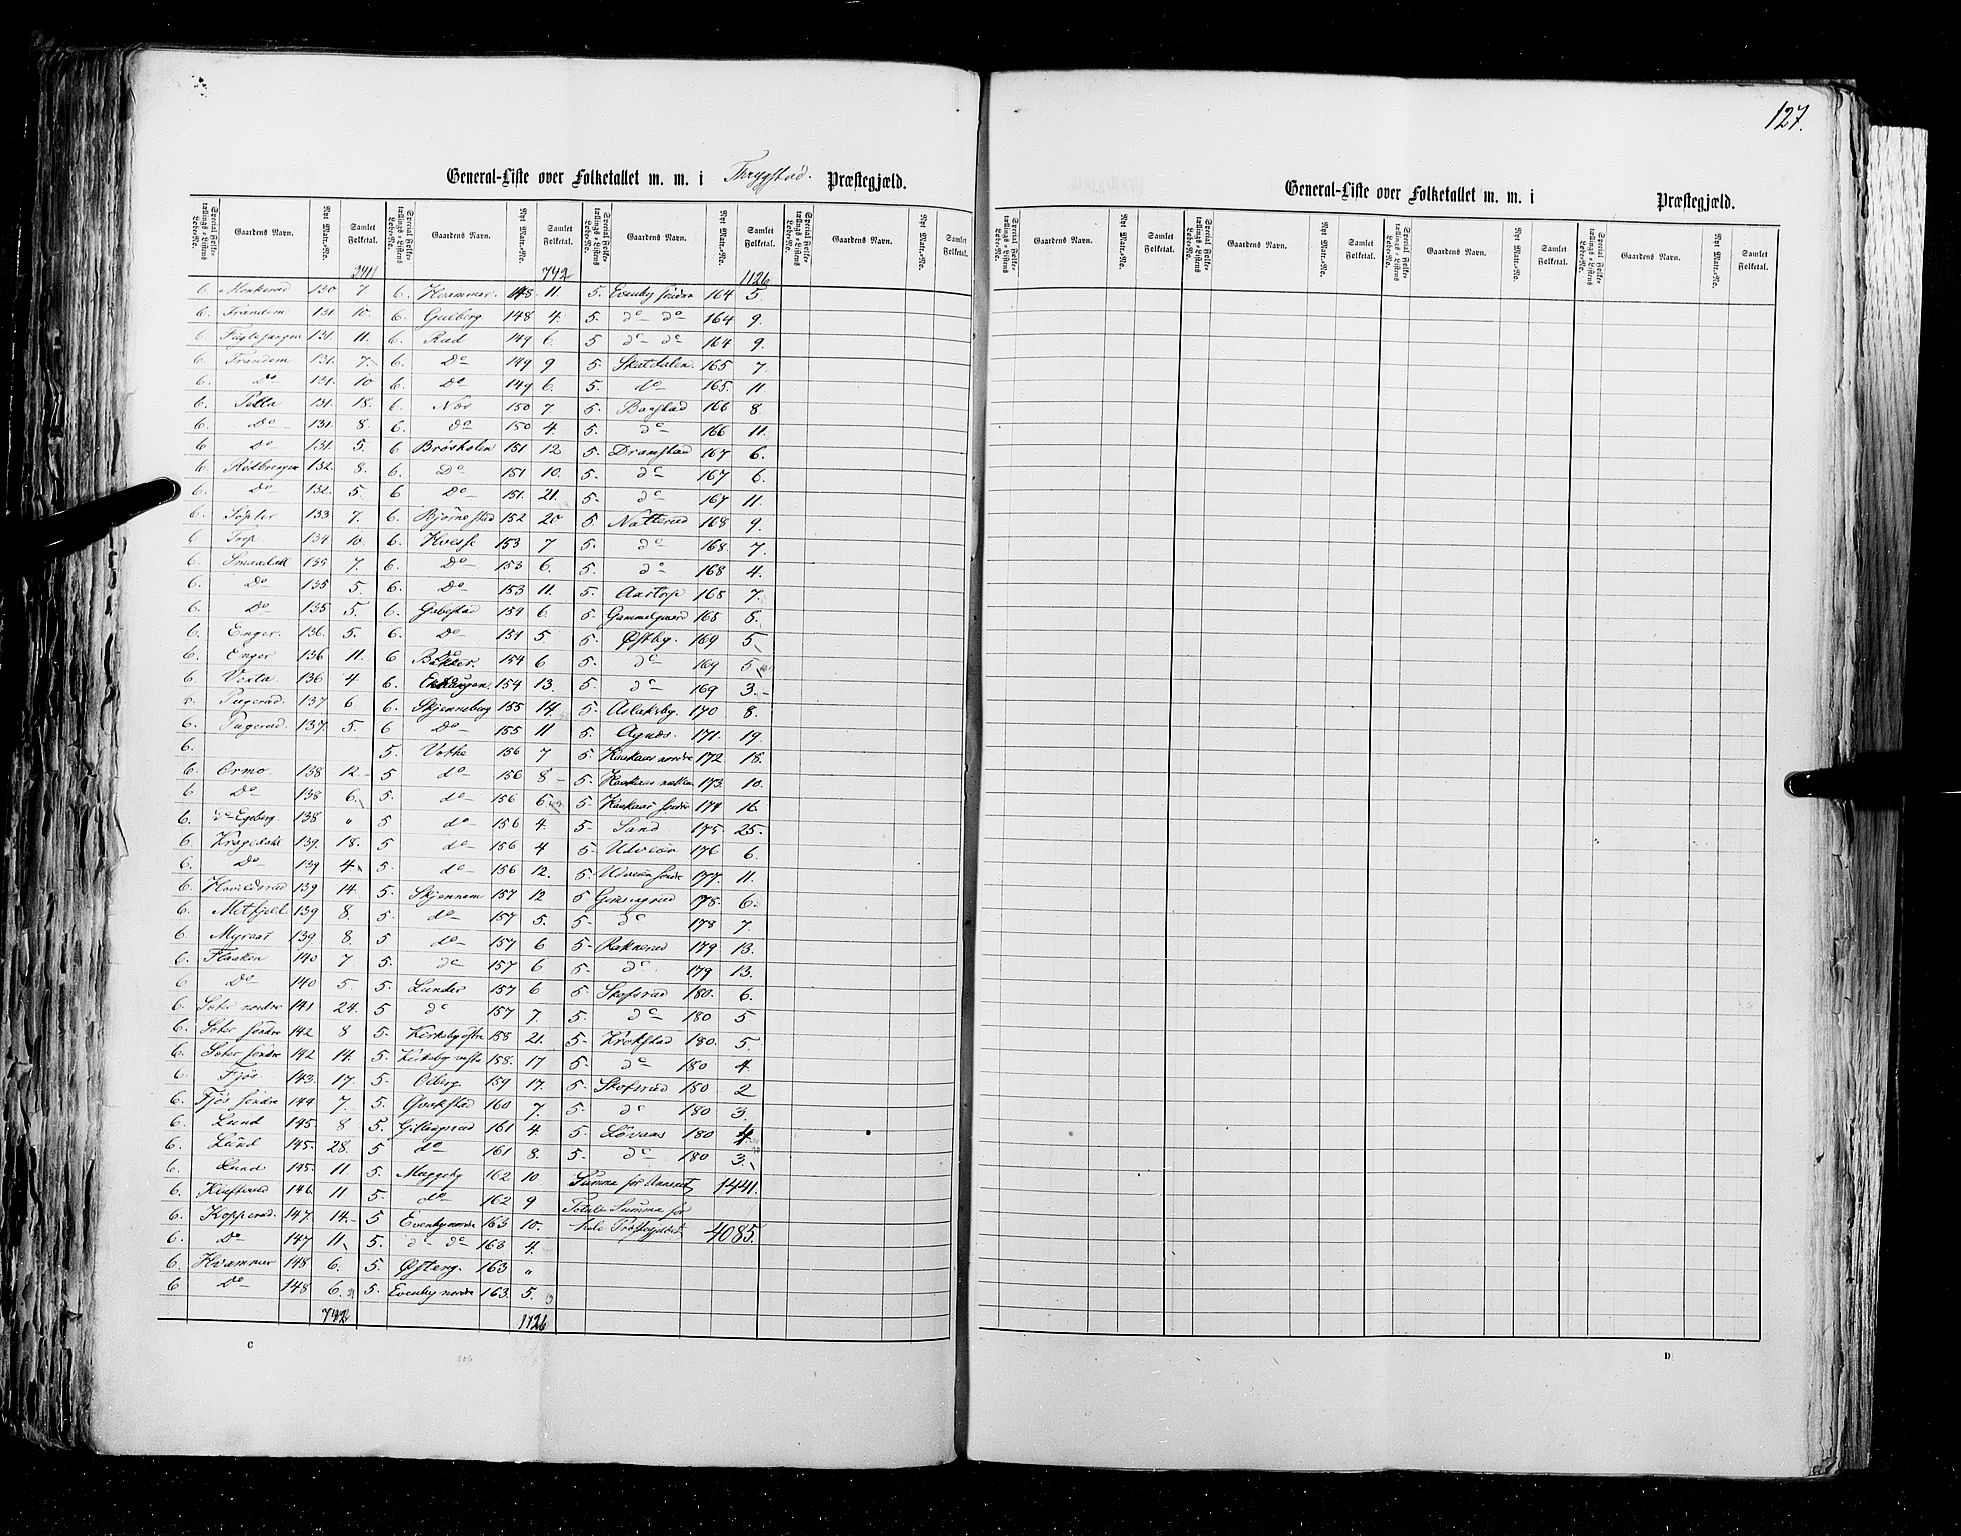 127.
General-Liste over Folketallet m. m. i Thrygstad. Præstegjæld.
Special Folketællings-Listens Løbe-No. Gaardens Navn. Nyt Matr.-No. Samlet Folketal. Special Folketællings-Listens Løbe-No. Gaardens Navn. Nyt Matr.-No. Samlet Folketal. Special Folketællings-Listens Løbe-No. Gaardens Navn. Nyt Matr.-No. Samlet Folketal. Special Folketællings-Listens Løbe-No. Gaardens Navn. Nyt Matr.-No. Samlet Folketal.
371 742 1126
6. Monkerud 130 7. 6. Hvammer 148 11. 5. Evenby søndre 164 5.
6. Frandem 131. 10. 6. Gulberg 148 4. 5. do do 164 9.
6. Fuglesangen 131. 11. 6. Rud 149 6. 5 do do 164 9.
6. Frandem 131. 7. 6. Do 149 9 5. Skatdalen 165 7
6. Do 131. 10 6. Do 149 6. 5. do 165. 11.
6. 131. 18. 6. Næs 150 7 5. Baastad 166 8.
6. Do 131. 8. 6. do 150 4. 5. do 166 11.
6 Do 131. 5. 6 Brøsholen 151 12 5. Dramstad 167 6.
6. 132. 8. 6. Do 151 10. 5. do 167 6.
6. Do 132. 5. 6 Do 151. 21. 5. do 167 11.
6. Sopler 133 7. 6. Bjørnestad 152 20 5. Natterud 168 9.
6 Torp 134 10. 6. Kvesse 153 7 5. do 168. 7.
6. Smaadal 135 7. 6. Do 153 6. 5. do 168 4.
6. Do 135 5. 6. Do 153 11. 5. Aastorp 168 7.
6. Do 135 5. 6. Gabestad 154 6. 5. Gammelgaard 168 8.
6. Enger. 136. 5. 6. Do 154 5. 5. Østby. 169 5
6. Enger 136 11. 6 Bakker. 154 6 5. do 169 5
6. Vesta 136 4 6. 154 13. 5. do 169 3.
Tugerud 137 6 6. Skjennsberg 155 14. 5. Aslaksby. 170 8.
6. Tugerud 137. 5. 6 Do 155 11 5. Agnæs. 171. 19.
6. 5. Vothe 156 7 5. Haakaas nordre 172 18.
6. Ormo. 138 12. 5 do 156 8 5. Haakaas 173. 10.
6 Do 138 6. 5. do 156 6 5. Haakaas søndre 174 16.
6. do Egeberg 138 " 5 do 156 4. 5. Sand 175. 25.
6 Kragedahl 139. 18. 5 do 156 4 5. 176 6.
6. Do 139 4 5. do 156 12. 5. søndre 177. 11.
6. 139 14. 5. Skjennem 157 12 5 178. 6.
6. Mitfjell. 139 8. 5. do 157 5. 5. do 178 7.
6. Myraas 139 8. 5 do 157 6 5. Raknerud 179 13.
6. Flaaken 140 7 5. do 157 6 5. do. 179 13.
6 Do 140 5. 5. Lunder 157 6 5. Skofsrud 180. 6.
6. Soter nordre 141 24. 5 do 157 7. 5. do 180 5
6. Soter søndre 142 8 5. Kirkeby østre 158 21. 5. Krokstad 180. 5.
6. Soter søndre 142 14. 5. Kirkeby vestre 158. 17 5. do 180 4.
6. Fjøs 143. 17. 5. Oeberg. 159 17. 5. Skofsrud 180 2
6. Fjøs søndre 144 7. 5. 160 7. 5. do 180 3.
6. Lund 145 8 5. Gillingsrud 161 4. 5. Løvaas 180 4.
6. Lund 145. 28. 5 do 161 8. 5. do 180 3.
6. Lund 145. 11. 5. Moggeby 162 10 Summa for Annexet 1441.
6. 146. 11 5. do 162 9 Totale Summa for
6. Kopperud. 147. 14. 5 Evenby nordre 163 10. hele Præstegjeldet 4085.
6. Do 147 11 5. do do 163 4.
6. Hvammer 148 6. 5. Østerg. 163 "
6 Do 148 6. 5. Evenby nordre 163. 5.
742 1126
C
General-Liste over Folketallet m. m. i Præstegjæld.
Special Folketællings-Listens Løbe-No. Gaardens Navn. Nyt Matr.-No. Samlet Folketal. Special Folketællings-Listens Løbe-No. Gaardens Navn. Nyt Matr.-No. Samlet Folketal. Special Folketællings-Listens Løbe-No. Gaardens Navn. Nyt Matr.-No. Samlet Folketal. Special Folketællings-Listens Løbe-No. Gaardens Navn. Nyt Matr.-No. Samlet Folketal.
D